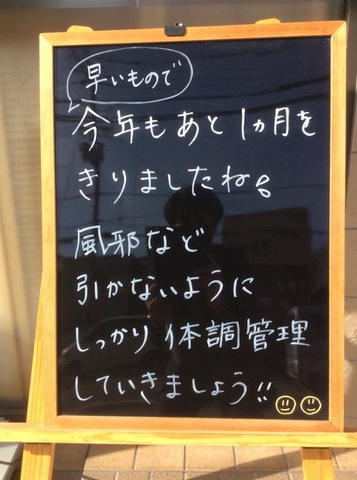 早いもので
今年もあと1ヵ月を
きりましたね。
風邪など
引かないように
しっかり体調管理
していきましょう!!